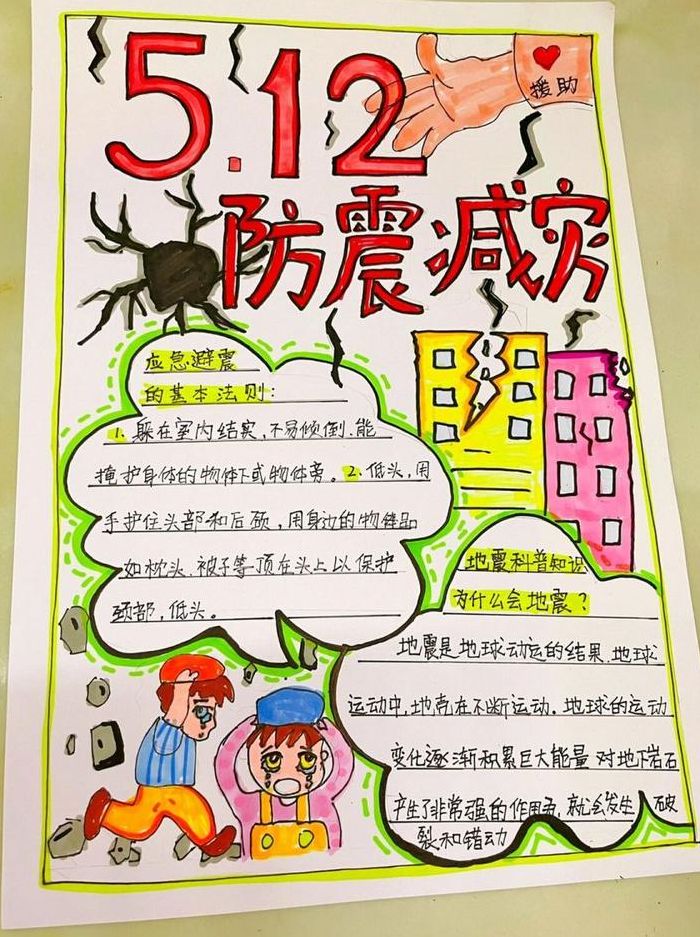 5.12
援助
防震减灾
应急避震
的基本法则：
1. 躲在室内结实，不易倾倒.能
掩护身体的物体下或物体旁。2. 低头，用
手护住头部和后颈，用身边的物体品
如枕头、被子等顶在头上以保护
颈部，低头。
地震科普知识
为什么会地震？
地震是地球动运的结果.地球
运动中，地壳在不断运动.地球的运动
变化逐渐积累巨大能量 对地下岩石
产生了非常强的作用 就会发生 破
裂和错动